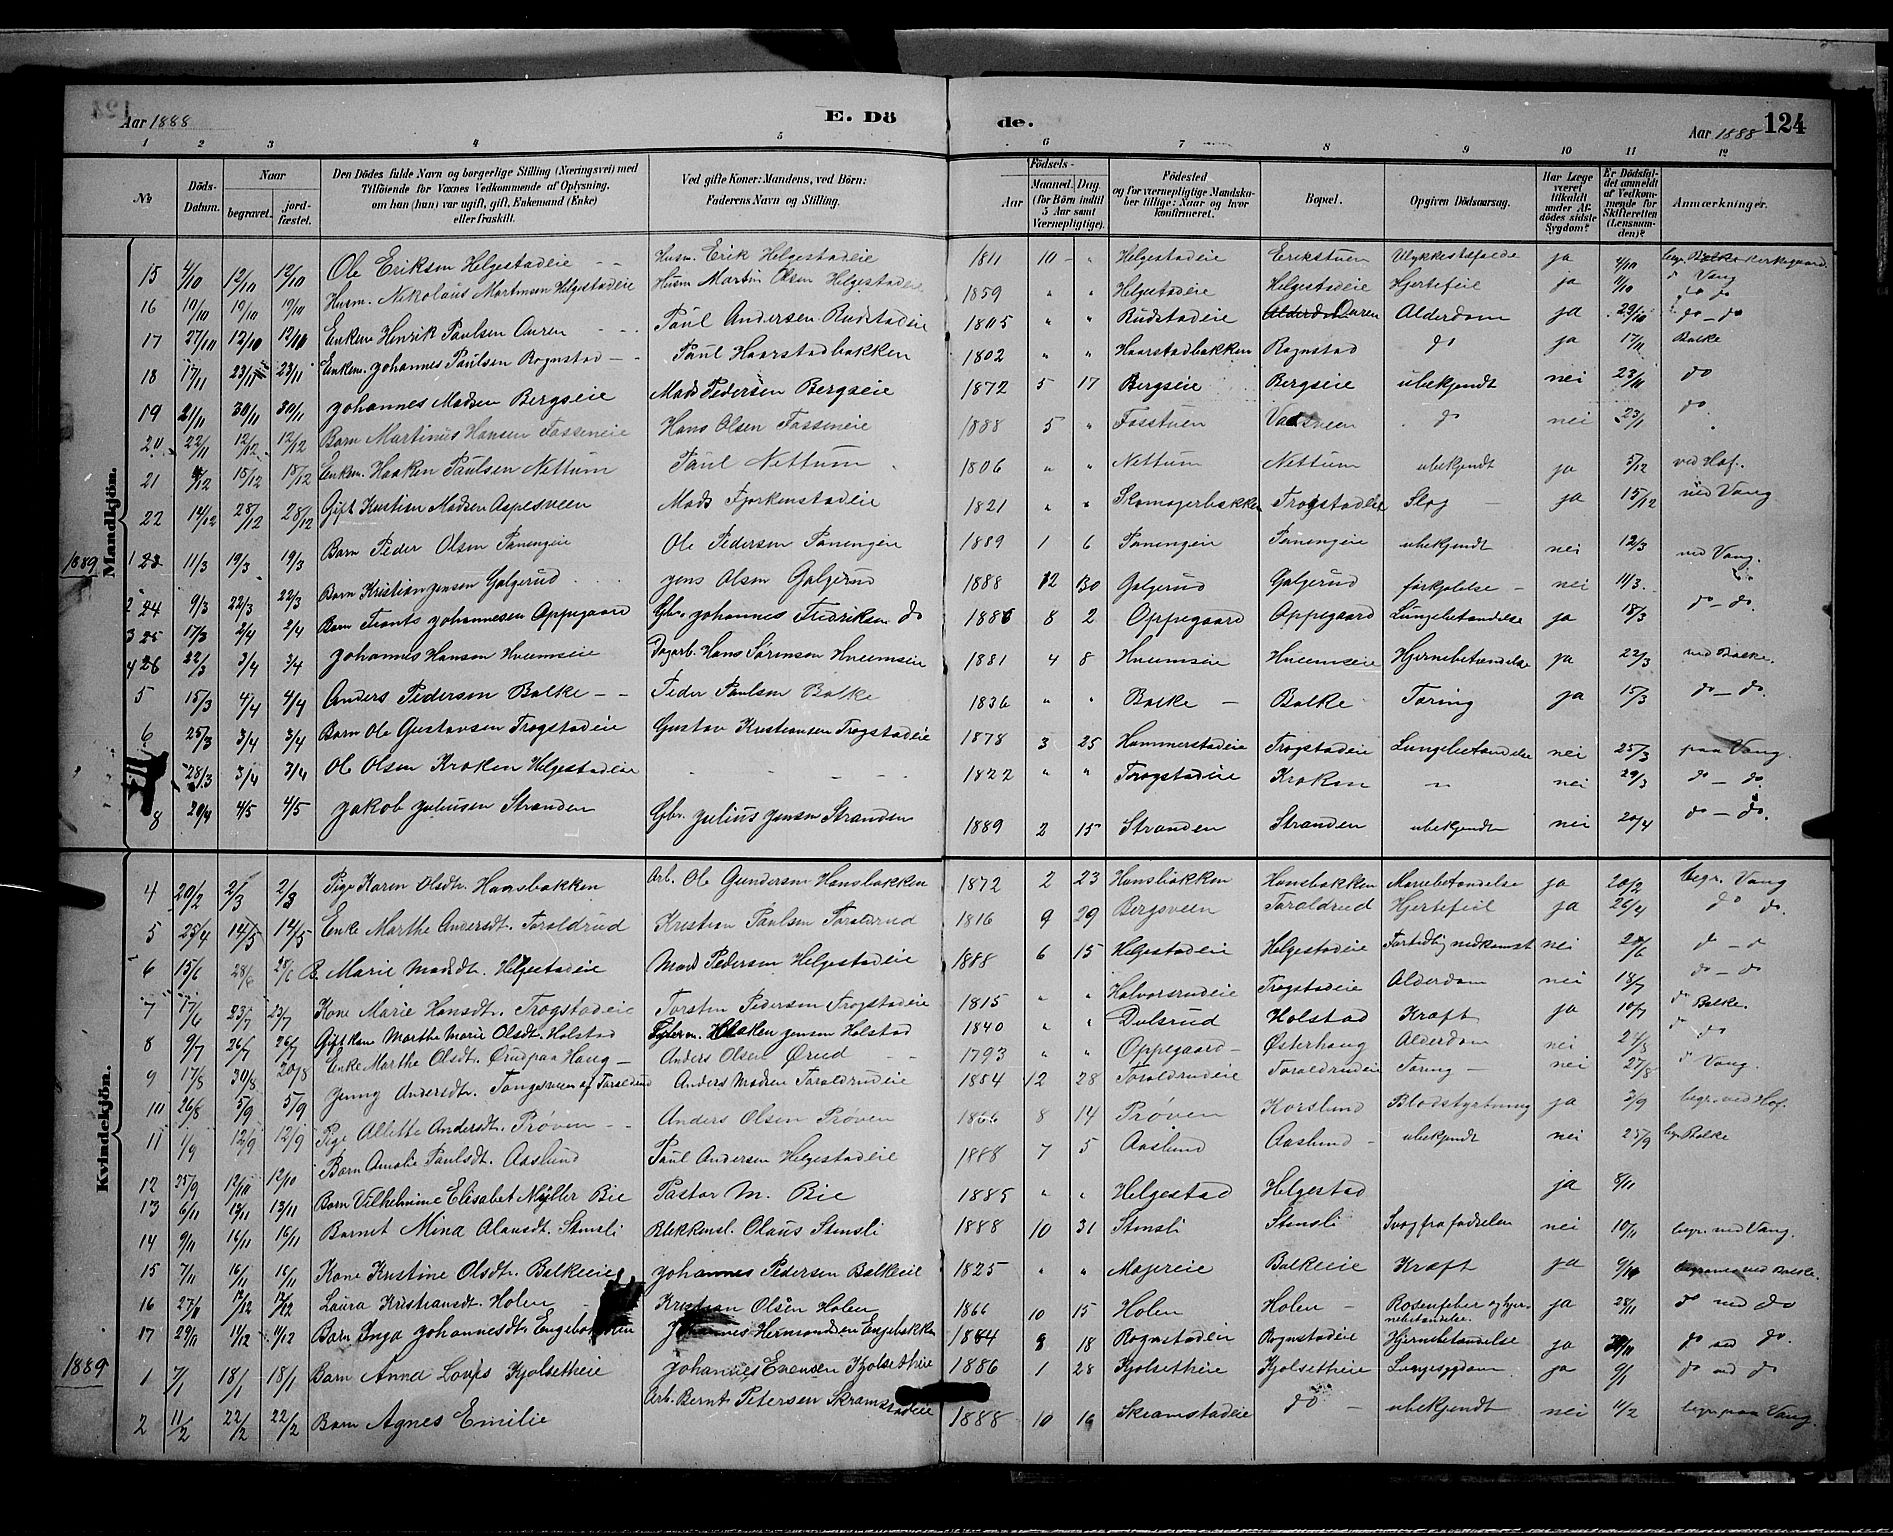 Aar 1888 E. Dö de. Aar 1888 124
1 2 3 4 5 6 7 8 9 10 11 12
No Döds-Datum. Naar begravet. jordfæstet. Den Dödes fulde Navn og borgerlige Stilling (Næringsvei) med Tilföiende for Voxnes Vedkommende af Oplysning, om han (hun) var ugift, gift, Enkemand (Enke) eller fraskilt. Ved gifte Koner: Mandens, ved Börn: Faderens Navn og Stilling. Födsels- Aar Maaned. Dag. (for Börn indtil 5 Aar samt Værnepligtige). Födested og for værnepligtige Mandskaber tillige: Naar og hvor konfirmeret. Bopæl. Opgiven Dödsaarsag. Har Læge været tilkaldt under Afdödes sidste Sygdom? Er Dödsfaldet anmeldt af Vedkommende for Skifteretten (Lensmanden)? Anmærkninger.
Mandkjön.
15 4/10 12/10 12/10 Ole Eriksen Helgestadeie Husm. Erik Helgestadeie 1811 10 Helgestadeie Erikstuen Ulykkestefælde ja 4/10 begr. Balke Kirkegaard
16 10/10 19/10 19/10 Husm. Nikolaus Martinsen Helgestadeie Husm Martin Olsen Helgestadeie 1859 " " Helgestadeie Helgestadeie Hjertefeil ja 9/10 do Vang
17 27/10 12/10 12/10 Enkem Henrik Paulsen Auren Paul Andersen Rudstadeie 1805 " " Rudstadeie Auren Alderdom ja 29/10 do - do
18 17/11 23/11 23/11 Enkem. Johannes Paulsen Rognstad Paul Haarstadbakken 1802 " " Haarstadbakken Rognstad do ja 17/11 Balke
19 21/11 30/11 30/11 Johannes Madsen Bergseie Mads Pedersen Bergseie 1872 5 17 Bergseie Bergseie ubekjendt nei 23/11 do
20 22/11 12/12 12/12 Barn Martinus Hansen Fosseneie Hans Olsen Fosseneie 1888 5 " Fosstuen do nei 23/1
21 4/12 15/12 15/12 Enkem. Haaken Paulsen Nettum Paul Nettum 1806 " " Nettum Nettum ubekjendt ja 5/12 ved Hof.
22 14/12 28/12 28/12 Gift Kristian Madsen Aspesveen Mads Fjorkenstadeie 1821 " " Skomagerbakken Trogstadeie Slag ja 15/12 ved Vang
1889 1 23 11/3 19/3 19/3 Barn Peder Olsen Panengeie Ole Pedersen Panengeie 1889 1 6 Panengeie Panengeie ubekjendt nei 12/3 ved Vang.
2 24 9/3 22/3 22/3 Barn Kristian Jensen Galgerud Jens Olsen Galgerud 1888 12 30 Galgerud Galgerud forkjølelse nei 11/3 do
3 25 17/3 2/4 2/4 Barn Frants Johannesen Oppegaard Gbr. Johannes Fredriksen do 1886 8 2 Oppegaard Oppegaard Lungebetændelse ja 18/3 do - do.
4 28 22/3 3/4 3/4 Johannes Hansen Hveemseie Dagarb. Hans Sørensen Hveemseie 1881 4 8 Hveemseie Hveemseie Hjernebetændelse ja 22/3 ved Balke.
5 15/3 4/4 4/4 Anders Pedersen Balke Peder Paulsen Balke 1836 " " Balke Balke Tæring ja 15/3 do - do.
6 25/3 3/4 3/4 Barn Ole Gustavsen Trogstadeie Gustav Kristiansen Trogstadeie 1878 3 25 Hammerstadeie Trogstadeie Lungebetændelse nei 25/3 paa Vang.
28/3 3/4 3/4 Ole Olsen Kroken Helgestadeie 1822 " " Trogstadeie Kroken " nei 29/3 do - do.
8 20/4 4/5 4/5 Jakob Juliussen Stranden Gbr. Julius Jensen Stranden 1889 2 15 Stranden Stranden ubekjendt nei 20/4 do - do.
Kvindekjön.
4 20/2 2/3 2/3 Pige Karen Olsdt. Hansbakken Arb. Ole Gundersen Hansbakken 1872 2 23 Hansbakken Hansbakken Mavebetændelse ja 20/2 begr. Vang
5 25/4 14/5 14/5 Enke Marthe Andersdt. Toraldrud Kristian Paulsen Toraldrud 1816 9 29 Bergsveen Toraldrud Hjertefeil ja 26/4 do do.
6 15/6 28/6 28/6 B. Marie Madsdt. Helgestadeie Mads Pedersen Helgestadeie 1888 6 15 Helgestadeie Helgestadeie Fortidlig nedkomst nei 28/6 do - do
7 17/6 23/7 23/7 Kone Marie Hansdt. Trogstadeie Torsten Pedersen Trogstadeie 1815 " " Halvorsrudeie Trogstadeie Alderdom nei 18/7 do - do
8 9/7 26/7 26/7 Gift kone Marthe Marie Olsdt. Holstad Haaken Jensen Holstad 1840 " " Dulsrud Holstad Kræft ja 10/7 do Balke.
9 17/8 30/8 30/8 Enke Marthe Olsdt. Ørud paa Haug Anders Olsen Ørud 1793 " " Oppegaard Østerhaug Alderdom nei 21/8 do do
10 26/8 5/9 5/9 Jenny Andersdt. Tangsveen af Toraldrud Anders Madsen Toraldrudeie 1854 12 28 Toraldrudeie Toraldrudeie Tæring nei 27/8 " Vang.
11 1/9 12/9 12/9 Pige Allette Andersdt. Prøven Anders Olsen Prøven 1866 8 14 Prøven Korslund Blodstyrtning ja 3/9 begr. ved Hof.
12 25/9 12/10 12/10 Barn Amalie Paulsdt. Aaslund Paul Andersen Helgestadeie 1888 7 5 Aaslund Aaslund ubekjendt nei 25/9 begr Balke
13 6/11 13/11 13/11 Barn Vilhelmine Elisabet Müller Bie Pastor M. Bie 1885 " " Helgestad Helgestad ja 8/11
14 9/11 16/11 16/11 Barnet Mina Olausdt. Stensli Blikkensl. Olaus Stensli 1888 10 31 Stensli Stensli Svag fra fødselen nei 10/11 begr. ved Vang.
15 7/11 16/11 16/11 Kone Kristine Olsdt. Balkeeie Johannes Pedersen Balkeeie 1825 " " Majreie Balkeeie Kræft ja 9/10 begraves ved Balke.
16 27/11 12/12 12/12 Laura Kristiansdt. Holen Kristian Olsen Holen 1866 10 15 Holen Holen Rosenfeber og hjernebetændelse. ja 28/11 do ved do
17 29/11 11/12 11/12 Barn Inga Johannesdt. Engebakken Johannes Hermandsen Engebakken 1884 9 18 Rognstadeie Rognstadeie Hjernebetændelse ja 30/11 do ved do.
1889 1 7/1 18/1 18/1 Barn Anna Lovis Kjølsetheie Johannes Evensen Kjølsetheie 1886 1 28 Kjølsetheie Kjølsetheie Lungesygdom ja 9/1 do ved do
2 11/2 22/2 22/2 Barn Agnes Emilie Arb. Bernt Petersen Skramstadeie 1888 10 16 Skramstadeie do ubekjendt nei 11/2 begr. paa Vang.